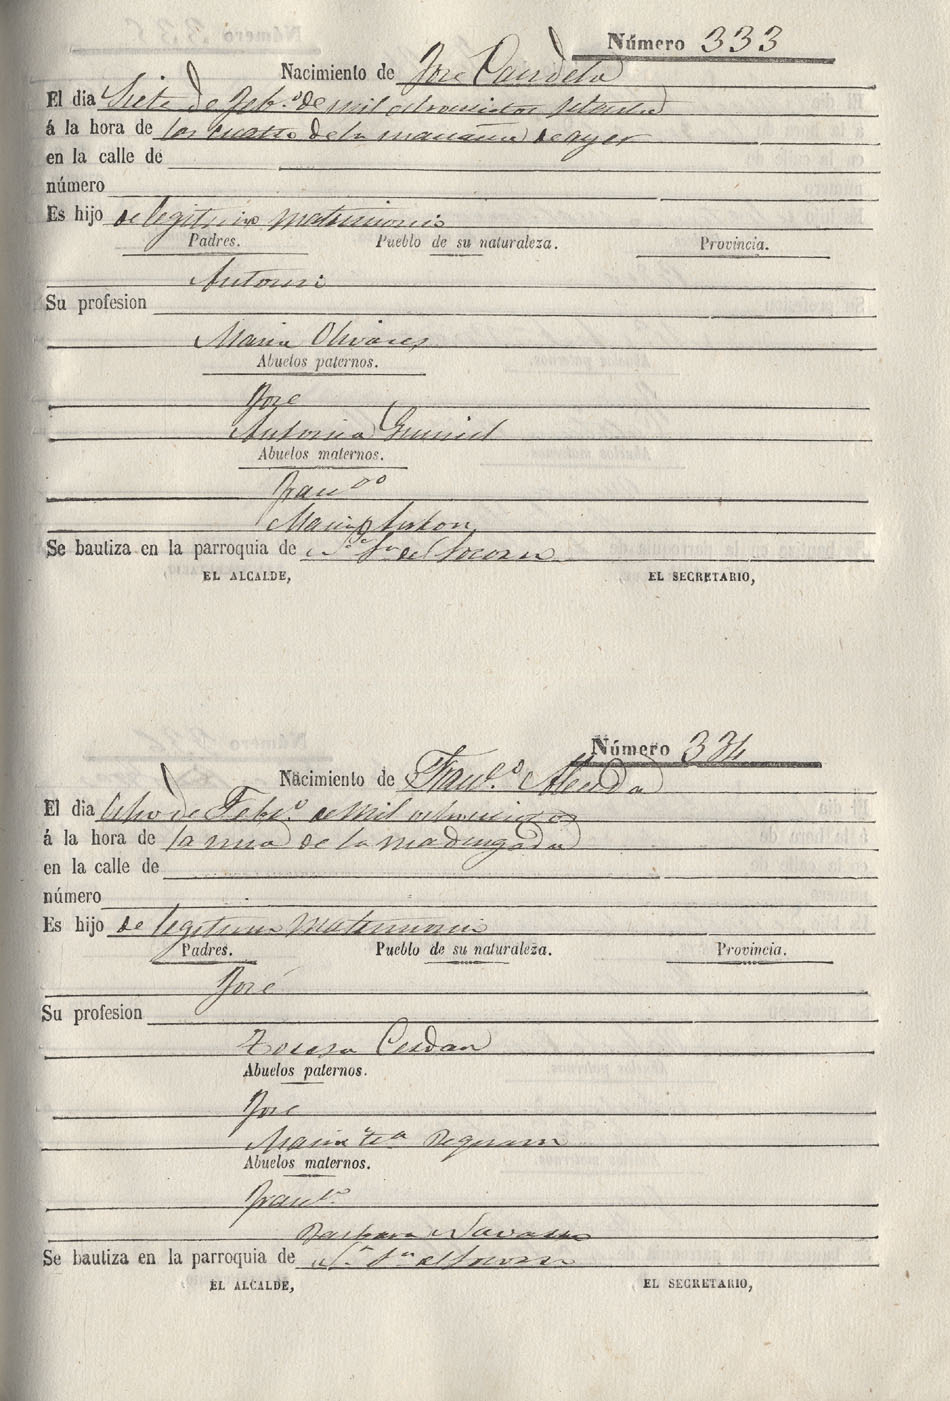 Número 333
Nacimiento de José Candela
El dia Siete de Feb.º de mil ochocientos setenta
á la hora de las cuatro de la mañana de ayer
en la calle de
número
Es hijo de legitimo matrimonio
Padres. Pueblo de su naturaleza. Provincia.
Antonio
Su profesion
Maria Olivares
Abuelos paternos.
José
Antonia
Abuelos maternos.
Fran.co
Maria
Se bautiza en la parroquia de N.ª S.ra del Socorro
EL ALCALDE, EL SECRETARIO,
Número 334
Nacimiento de Fran.co
El dia Ocho de Feb.º de Mil ochocientos
á la hora de la una de la madrugada
en la calle de
número
Es hijo de legitimo Matrimonio
Padres. Pueblo de su naturaleza. Provincia.
José
Su profesion
Teresa Cerdan
Abuelos paternos.
José
Maria
Abuelos maternos.
Fran.co
Barbara Navarro
Se bautiza en la parroquia de N.ª S.ra del Socorro
EL ALCALDE, EL SECRETARIO,